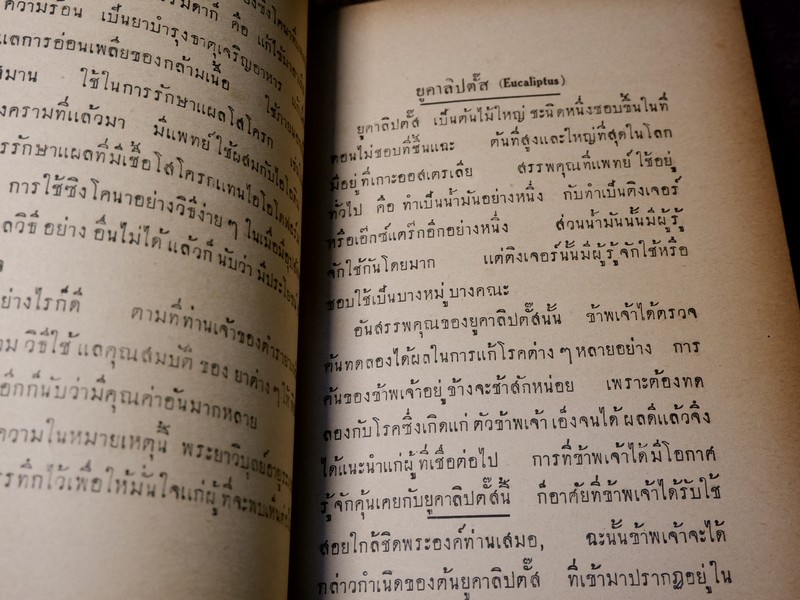 ความร้อน เป็นยาบำรุงธาตุเจริญอาหาร
แลการอ่อนเพลียของกล้ามเนื้อ
สมาน ใช้ในการรักษาแผลโสโครก
งครามที่แล้วมา มีแพทย์ใช้ผสมกับไอโอ
รรักษาแผลที่มีเชื้อโสโครกแทนไอโอโดฟอร์ม
การใช้ซิงโคนาอย่างวิธีง่าย ๆ ในเมื่อมี
ลวิธีอย่าง อื่นไม่ได้ แล้วก็นับว่า มีประโยชน์
ย่างไรก็ดี ตามที่ท่านเจ้าของตำรา
าม วิธีใช้ แลคุณสมบัติ ของ ยาต่าง ๆ ไว้
อีกก็นับว่ามีคุณค่าอันมากหลาย
ความในหมายเหตุนี้ พระยาวิบุลย์อายุรเวท
รรทึกไว้เพื่อให้มั่นใจแก่ผู้ที่จะพบเห็น
ยูคาลิปตั๊ส (Eucaliptus)
ยูคาลิปตั๊ส เป็นต้นไม้ใหญ่ ชะนิดหนึ่งชอบขึ้นในที่
ดอนไม่ชอบที่ชื้นแฉะ ต้นที่สูงและใหญ่ที่สุดในโลก
มีอยู่ที่เกาะออสเตรเลีย สรรพคุณที่แพทย์ใช้อยู่
ทั่วไป คือ ทำเป็นน้ำมันอย่างหนึ่ง กับทำเป็นติงเจอร์
หรือเอ๊กซ์แตร๊กอีกอย่างหนึ่ง ส่วนน้ำมันนั้นมีผู้รู้
จักใช้กันโดยมาก แต่ติงเจอร์นั้นมีผู้รู้จักใช้หรือ
ชอบใช้เป็นบางหมู่ บางคณะ
อันสรรพคุณของยูคาลิปตั๊สนั้น ข้าพเจ้าได้ตรวจ
ค้นทดลองได้ผลในการแก้โรคต่าง ๆ หลายอย่าง การ
ค้นของข้าพเจ้าอยู่ ข้างจะช้าสักหน่อย เพราะต้องทด
ลองกับโรคซึ่งเกิดแก่ ตัวข้าพเจ้า เองจนได้ ผลดีแล้วจึง
ได้แนะนำแก่ผู้ที่เชื่อต่อไป การที่ข้าพเจ้าได้มีโอกาศ
รู้จักคุ้นเคยกับยูคาลิปตั๊สนี้ ก็อาศัยที่ข้าพเจ้าได้รับใช้
สอยใกล้ชิดพระองค์ท่านเสมอ, ฉะนั้นข้าพเจ้าจะได้
กล่าวกำเนิดของต้นยูคาลิปตั๊ส ที่เข้ามาปรากฏอยู่ใน